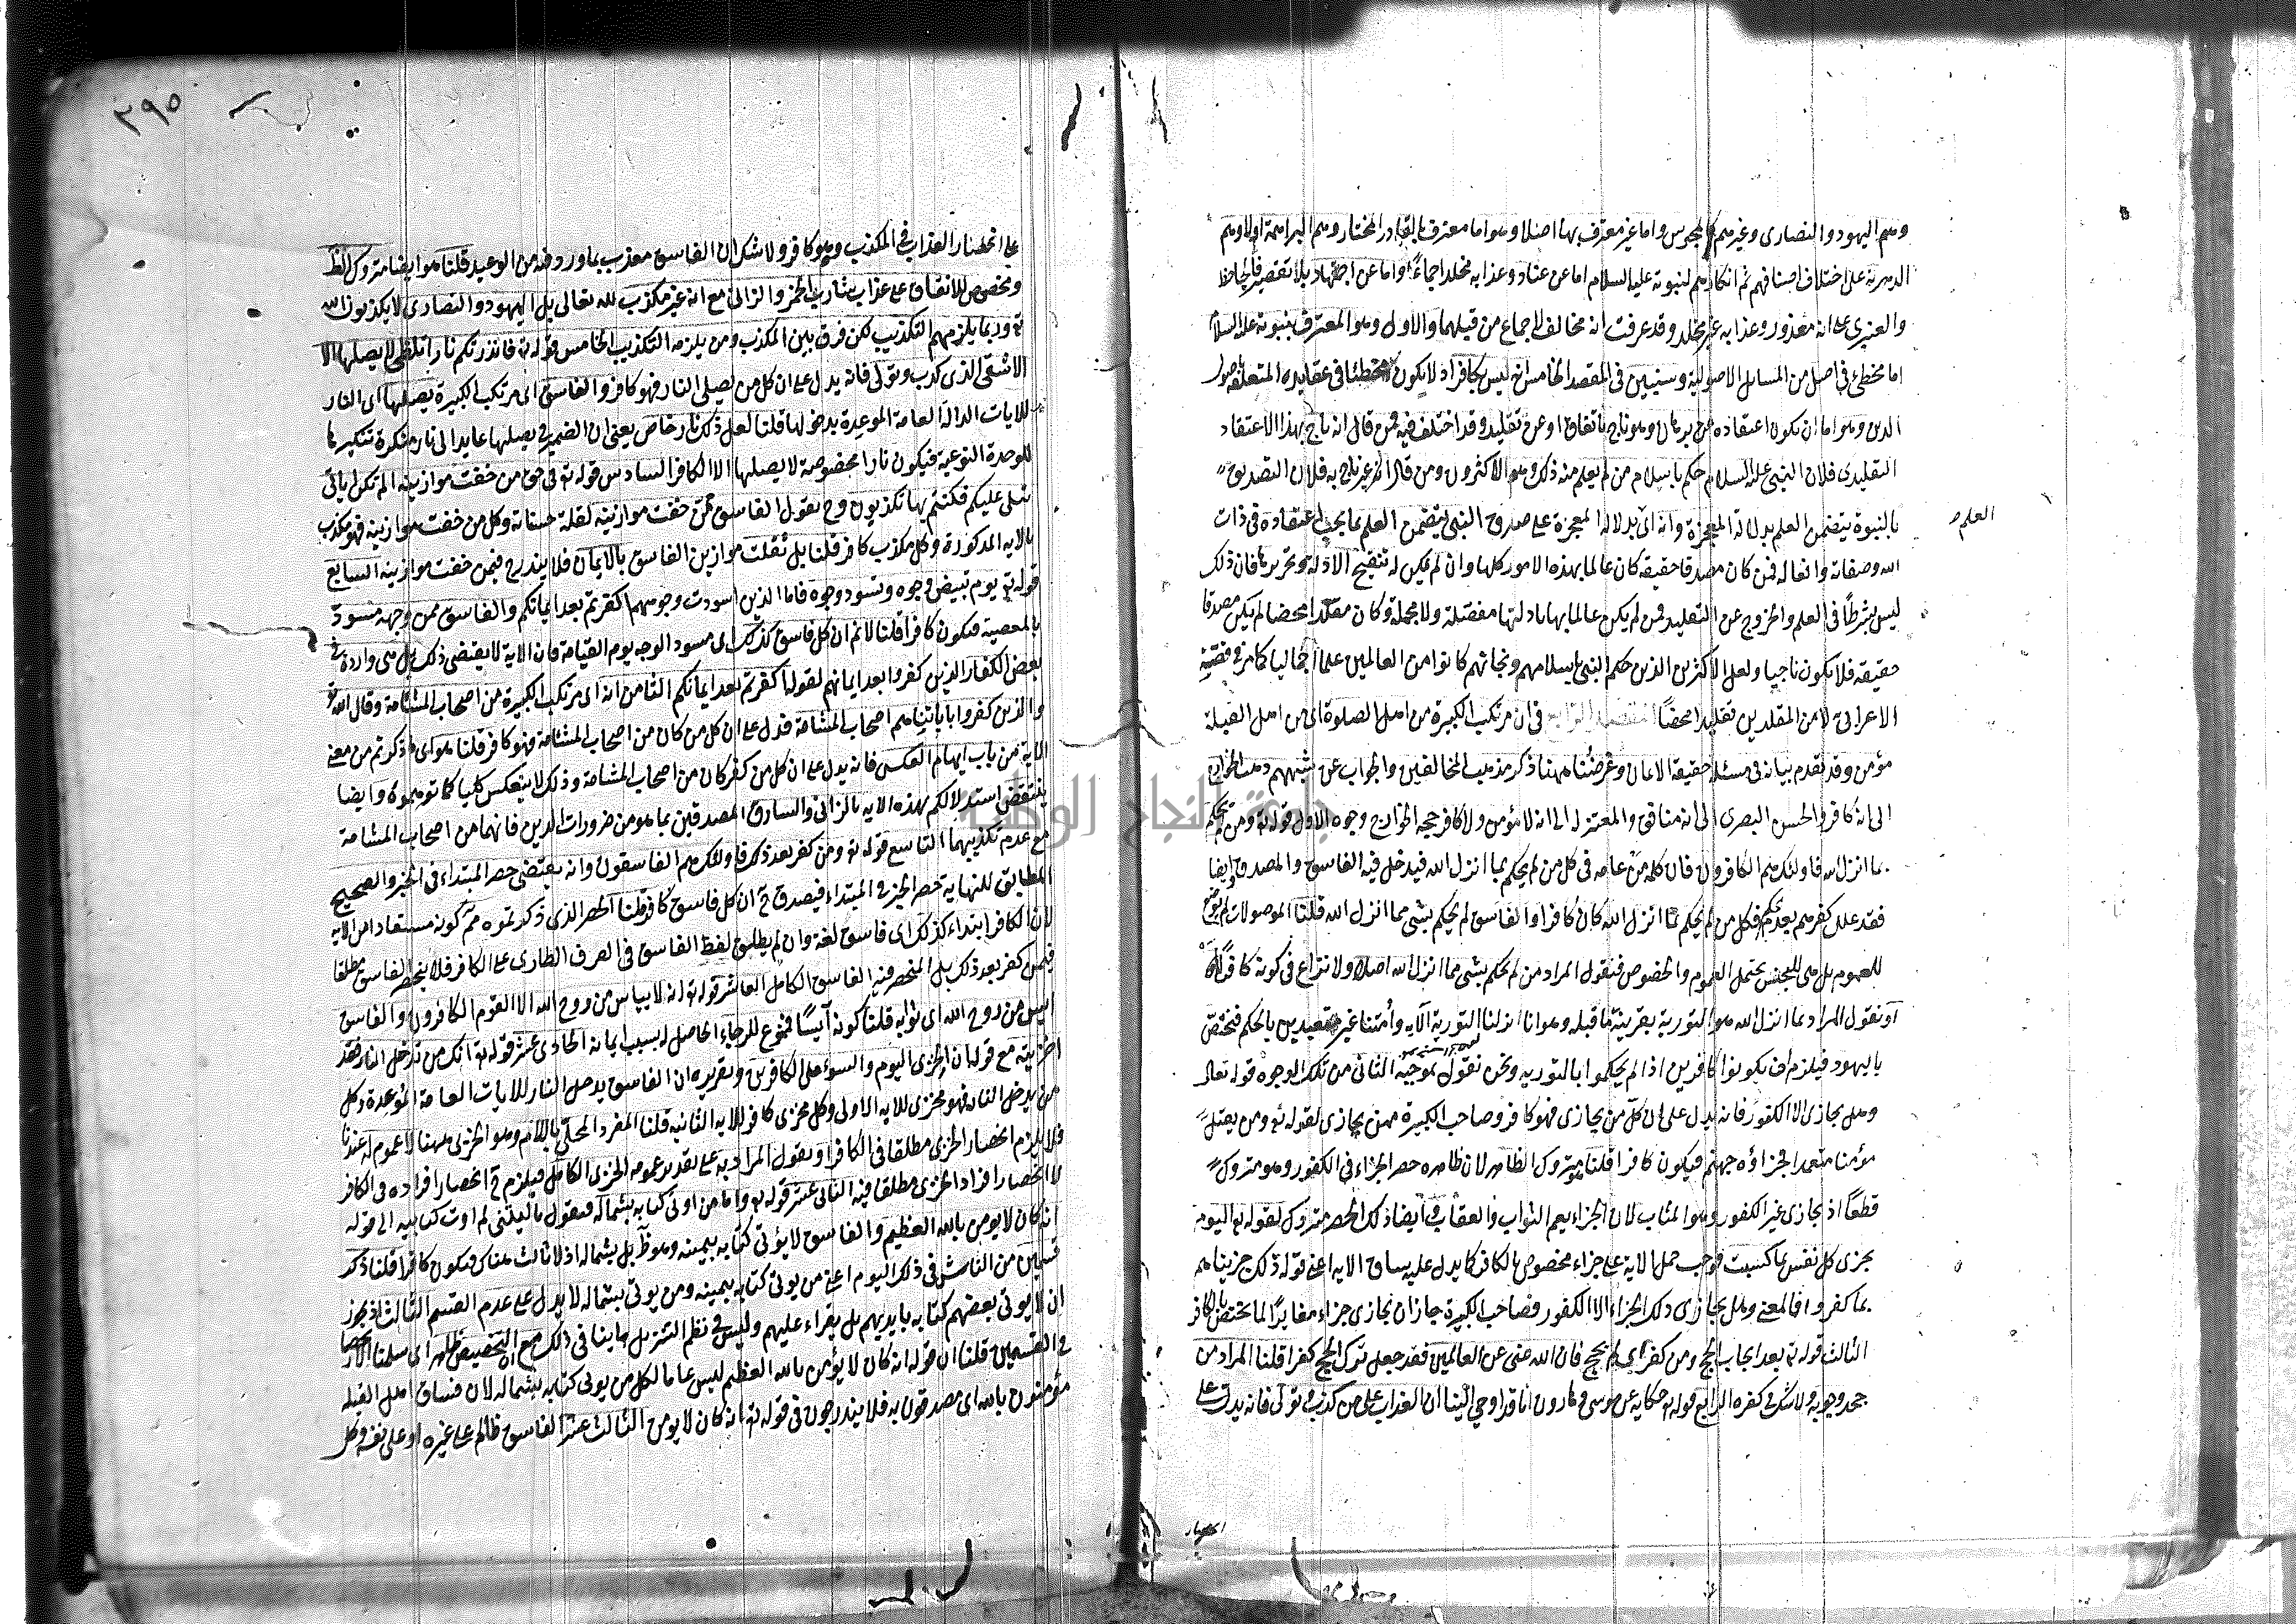 وهم اليهود والنصارى وغيرهم كالمجوس واما غير معترف بها اصلا وهو اما معترف بالقادر المختار وهم البراهمة اولا وهم
الدهرية على اختلاف اصنافهم ثم انكارهم لنبوته عليه السلام اما عن عناد وعذابه مخلد اجماعا واما عن اجتهاد بلا تقصير فالجاحظ
والعنبري على انه معذور وعذابه غير مخلد وقد عرفت انه مخالف لاجماع من قبلهما والاول وهو المعترف بنبوته عليه السلام
اما مخطئ في اصل من المسائل الاصولية وسنبين في المقصد الخامس انه ليس بكافر اذ لا يكون مخطئا في عقايده المتعلقة باصول
الدين وهو اما ان يكون اعتقاده عن برهان وهو ناج باتفاق او عن تقليد وقد اختلف فيه فمن قال انه ناج بهذا الاعتقاد
التقليدي فلان النبي عليه السلام حكم باسلام من لم يعلم منه ذلك وهو الاكثرون ومن قال انه غير ناج به فلان التصديق
بالنبوة يتضمن العلم بدلالة المعجزة وانه اي بدلالة المعجزة على صدق النبي يتضمن العلم بما يجب اعتقاده في ذات
العلم
الله وصفاته وافعاله فمن كان مصدقا حقيقة كان عالما بهذه الامور كلها وان لم يمكن له تنقيح الادلة وتحريرها فان ذلك
ليس بشرطا في العلم والخروج عن التقليد فمن لم يكن عالما بها بادلتها مفصلة ولا مجملة وكان مقلدا محضا لم يكن مصدقا
حقيقة فلا يكون ناجيا ولعل الاكثرين الذين حكم النبي باسلامهم ونجاتهم كانوا من العالمين علما اجماليا كما مر في قصة
الاعرابي لا من المقلدين تقليدا محضا المقصد الرابع في ان مرتكب الكبيرة من اهل الصلوة اي من اهل القبلة
مؤمن وقد تقدم بيانه في مسئلة حقيقة الايمان وغرضنا ههنا ذكر مذهب المخالفين والجواب عن شبههم ذهب الخوارج
الى انه كافر والحسن البصري الى انه منافق والمعتزلة الى انه لا مؤمن ولا كافر حجة الخوارج وجوه الاول قوله تع ومن لم يحكم
بما انزل الله فاولئك هم الكافرون فان كلمة من عامة في كل من لم يحكم بما انزل الله فيدخل فيه الفاسق والمصدق وايضا
فقد علل كفرهم بعدم الحكم فكل من لم يحكم بما انزل الله كان كافرا والفاسق لم يحكم بشئ مما انزل الله قلنا الموصولات لم توضع
للعموم بل هي للجنس تحتمل العموم والخصوص فنقول المراد من لم يحكم بشئ مما انزل الله اصلا ولا نزاع في كونه كافرا
او نقول المراد بما انزل الله هو التورية بقرينة ما قبله وهو انا انزلنا التورية الآية وأمتنا غير متعبدين بالحكم فتختص
باليهود فيلزم ان يكونوا كافرين اذا لم يحكموا بالتورية ونحن نقول بموجبه الثاني من تلك الوجوه قوله تعالى
وهل يجازى الا الكفور فانه يدل على ان كل من يجازى فهو كافر وصاحب الكبيرة ممن يجازى لقوله تع ومن يقتل
مؤمنا متعمدا فجزاؤه جهنم فيكون كافرا قلنا هو متروك الظاهر لان ظاهره حصر الجزاء في الكفور وهو متروك
قطعا اذ يجازى غير الكفور وهو المثاب لان الجزاء يعم الثواب والعقاب وايضا ذلك الحصر متروك لقوله تع اليوم
تجزى كل نفس بما كسبت فوجب حمل الآية على جزاء مخصوص بالكافر كما يدل عليه سياق الاية اعني قوله ذلك جزيناهم
بما كفروا فالمعنى وهل يجازى ذلك الجزاء الا الكفور فصاحب الكبيرة جاز ان يجازى جزاء مغايرا لما يختص بالكافر
الثالث قوله تع بعد ايجاب الحج ومن كفر اي لم يحج فان الله غني عن العالمين فقد جعل ترك الحج كفرا قلنا المراد من
جحد وجوبه ولا شك في كفره الرابع قوله تع حكاية عن موسى وهارون انا قد اوحي الينا ان العذاب على من كذب وتولى فانه يدل على
انحصار
٢٩٥
على انحصار العذاب في المكذب وهو كافر ولا شك ان الفاسق معذب بما ورد فيه من الوعيد قلنا هو ايضا متروك الظ
وتخصوص للاتفاق على عذاب شارب الخمر والزاني مع انه غير مكذب لله تعالى بل اليهود والنصارى لا يكذبون الله
تع وربما يلزمهم التكذيب لكن فرق بين المكذب ومن يلزمه التكذيب الخامس قوله تع فانذرتكم نارا تلظى لا يصليها الا
الاشقى الذي كذب وتولى فانه يدل على ان كل من يصلى النار فهو كافر والفاسق اي مرتكب الكبيرة يصليها اي النار
للايات الدالة العامة الموعدة بدخولها قلنا لعل ذلك نار خاص يعني ان الضمير في يصليها عايد الى نار منكرة تنكيرها
للوحدة النوعية فيكون نارا مخصوصة لا يصليها الا الكافر السادس قوله تع في حق من خفت موازينه الم تكن اياتي
تتلى عليكم فكنتم بها تكذبون وح نقول الفاسق ممن خفت موازينه لقلة حسناته وكل من خفت موازينه فهو مكذب
بالاية المذكورة وكل مكذب كافر قلنا بل ثقلت موازين الفاسق بالايمان فلا يندرج فيمن خفت موازينه السابع
قوله تع يوم تبيض وجوه وتسود وجوه فاما الذين اسودت وجوههم اكفرتم بعد ايمانكم والفاسق ممن وجهه مسود
بالمعصية فيكون كافرا قلنا لا نم ان كل فاسق كذلك اي مسود الوجه يوم القيامة فان الاية لا يقتضي ذلك بل هي واردة في
بعض الكفار الذين كفروا بعد ايمانهم لقوله اكفرتم بعد ايمانكم الثامن انه اي مرتكب الكبيرة من اصحاب المشامة وقال الله تع
والذين كفروا باياتنا هم اصحاب المشامة فدل على ان كل من كان من اصحاب المشامة فهو كافر قلنا هو اي ما ذكرتم من معنى
الاية من باب ايهام العكس فانه يدل على ان كل من كفر كان من اصحاب المشامة وذلك لا ينعكس كليا كما توهموه وايضا
ينتقض استدلالكم بهذه الاية بالزاني والسارق المصدقين بما هو من ضرورات الدين فانهما من اصحاب المشامة
مع عدم تكذيبهما التاسع قوله تع ومن كفر بعد ذلك فاولئك هم الفاسقون وانه يقتضي حصر المبتداء في الخبر والصحيح
المطابق للنهاية حصر الخبر في المبتداء فيصدق ح ان كل فاسق كافر قلنا الحصر الذي ذكرتموه مم كونه مستفادا من الاية
لان الكافر ابتداء كذلك اي فاسق لغة وان لم يطلق لفظ الفاسق في العرف الطارئ على الكافر فلا ينحصر الفاسق مطلقا
فيمن كفر بعد ذلك بل المنحصر فيه الفاسق الكامل العاشر قوله تع انه لا ييأس من روح الله الا القوم الكافرون والفاسق
ايس من روح الله اي ثوابه قلنا كونه آيسا ممنوع للرجاء الحاصل له بسبب ايمانه الحادي عشر قوله تع انك من تدخل النار فقد
اخزيته مع قوله ان الخزي اليوم والسوء على الكافرين وتقريره ان الفاسق يدخل النار للايات العامة الموعدة وكل
من يدخل النار فهو مخزي للاية الاولى وكل مخزي كافر للاية الثانية قلنا المفرد المحلى باللام وهو الخزي ههنا لا عموم له عندنا
فلا يلزم انحصار الخزي مطلقا في الكافر او نقول المراد به على تقدير عمومه الخزي الكامل فيلزم ح انحصار افراده في الكافر
لا انحصار افراد الخزي مطلقا فيه الثاني عشر قوله تع واما من اوتي كتابه بشماله فيقول يا ليتني لم اوت كتابيه الى قوله
انه كان لا يومن بالله العظيم والفاسق لا يؤتى كتابه بيمينه وهو ظ بل بشماله اذ لا ثالث هناك فيكون كافرا قلنا ذكر
قسمين من الناس في ذلك اليوم اعني من يوتى كتابه بيمينه ومن يوتى بشماله لا يدل على عدم القسم الثالث اذ يجوز
ان لا يوتى بعضهم كتابه بايديهم بل يقراء عليهم وليس في نظم التنزيل ما ينافي ذلك مع ان التخصيص ظهر اي سلمنا الانحصار
في القسمين قلنا ان قوله انه كان لا يؤمن بالله العظيم ليس عاما لكل من يوتى كتابه بشماله لان فساق اهل القبلة
مؤمنون بالله اي مصدقون به فلا يندرجون في قوله تع انه كان لا يومن الثالث عشر الفاسق ظالم على غيره او على نفسه وكل